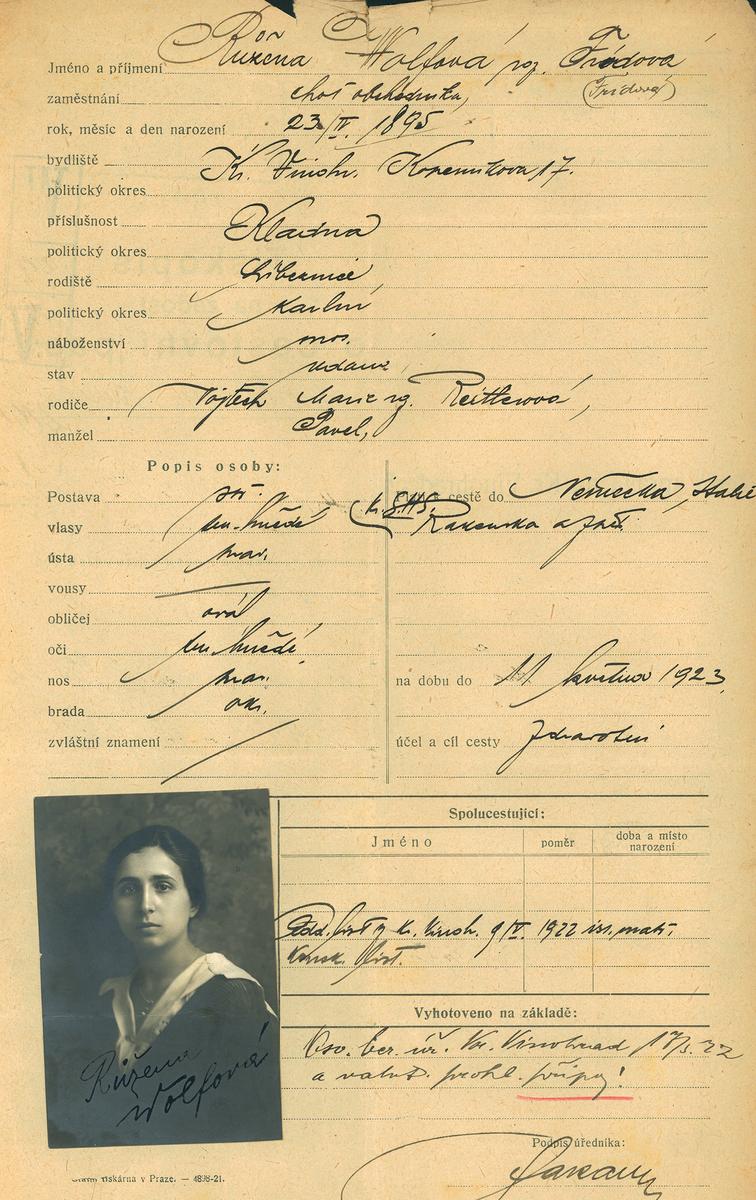 Jméno a příjmení Růžena Wolfová roz. Frídová
zaměstnání choť obchodníka, (Frídová)
rok, měsíc a den narození 23/IV. 1895
bydliště Kr. Vinohr. Koperníkova 17.
politický okres
příslušnost Kladna
politický okres
rodiště Libeznice
politický okres Karlín
náboženství mos.
stav vdaná
rodiče Vojtěch Marie roz. Reitlerová,
manžel Pavel,
Popis osoby:
Postava stř.
vlasy tm. hnědé
ústa prav.
vousy
obličej ovál
oči tm. hnědé
nos prav.
brada okr.
zvláštní znamení
k cestě do Německa, Italie
k. S.H.S. Rakouska a zpět
na dobu do 11 května 1923,
účel a cíl cesty Zdravotní
Spolucestující:
Jméno poměr doba a místo narození
Kr. Vinoh. 9/IV. 1922
Vyhotoveno na základě:
Osv. ber. úř. Kr. Vinohrad 17/3. 22
a valut. prohl. připoj!
Podpis úředníka:
Růžena
Wolfová
Státní tiskárna v Praze. — 4898-21.